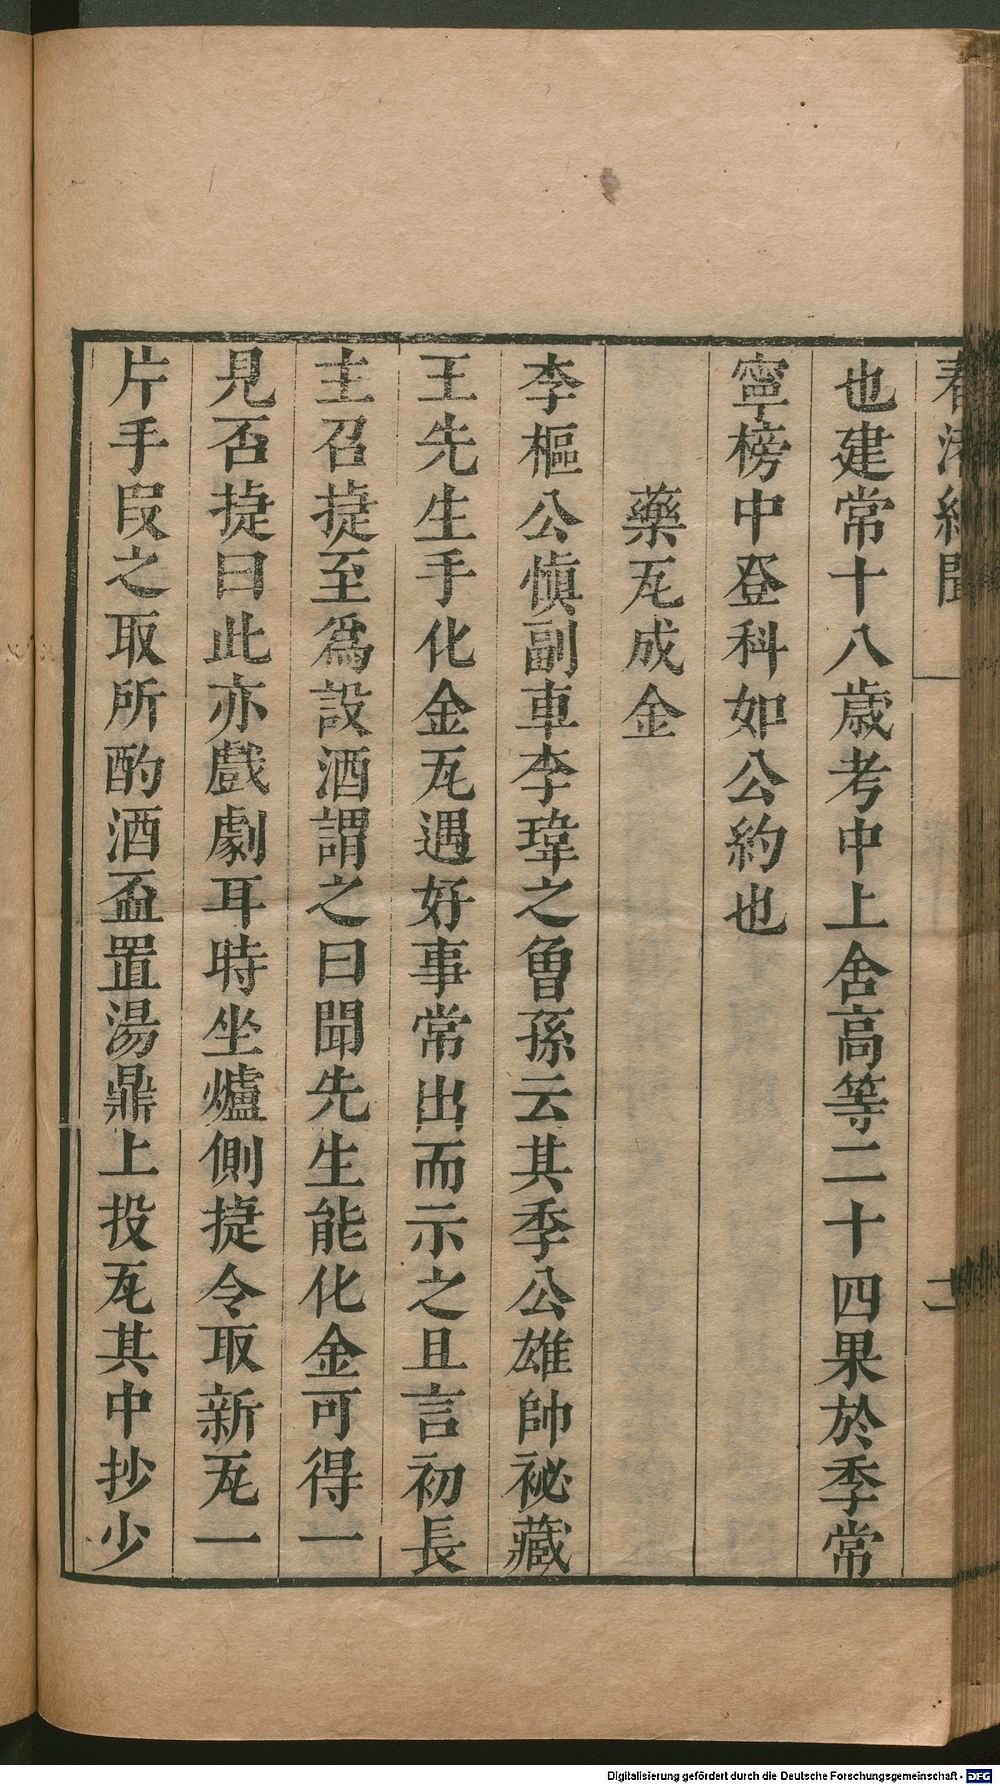 春渚紀聞
二
也建常十八歲考中上舍高等二十四果於季常
寧榜中登科如公約也
藥瓦成金
李樞公愼副車李瑋之曾孫云其季公雄帥祕藏
王先生手化金瓦遇好事常出而示之且言初長
主召捷至爲設酒謂之曰聞先生能化金可得一
見否捷曰此亦戲劇耳時坐爐側捷令取新瓦一
片手段之取所酌酒盃置湯鼎上投瓦其中抄少
Digitalisierung gefördert durch die Deutsche Forschungsgemeinschaft - DFG